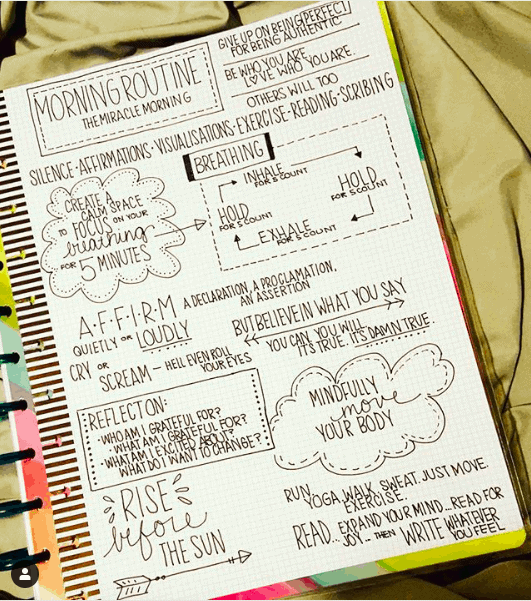 MORNING ROUTINE
THE MIRACLE MORNING
GIVE UP ON BEING PERFECT
FOR BEING AUTHENTIC
BE WHO YOU ARE
LOVE WHO YOU ARE.
OTHERS WILL TOO
SILENCE · AFFIRMATIONS · VISUALISATIONS · EXERCISE · READING · SCRIBING
BREATHING
INHALE
FOR 5 COUNT
HOLD
FOR 5 COUNT
EXHALE
FOR 5 COUNT
HOLD
FOR 5 COUNT
CREATE A
CALM SPACE
TO FOCUS ON YOUR
breathing
FOR 5 MINUTES
A·F·F·I·R·M
A DECLARATION, A PROCLAMATION,
AN ASSERTION
QUIETLY OR LOUDLY
CRY OR
SCREAM – HELL EVEN ROLL
YOUR EYES
BUT BELIEVE IN WHAT YOU SAY
YOU CAN, YOU WILL
IT'S TRUE. IT'S DAMN TRUE.
REFLECT ON:
• WHO AM I GRATEFUL FOR?
• WHAT AM I GRATEFUL FOR?
• WHAT AM I EXCITED ABOUT?
WHAT DO I WANT TO CHANGE?
MINDFULLY
move
YOUR BODY
RUN, YOGA, WALK, SWEAT. JUST MOVE.
EXERCISE.
RISE
before
THE SUN
READ... EXPAND YOUR MIND... READ FOR
JOY – THEN WRITE WHATEVER
YOU FEEL